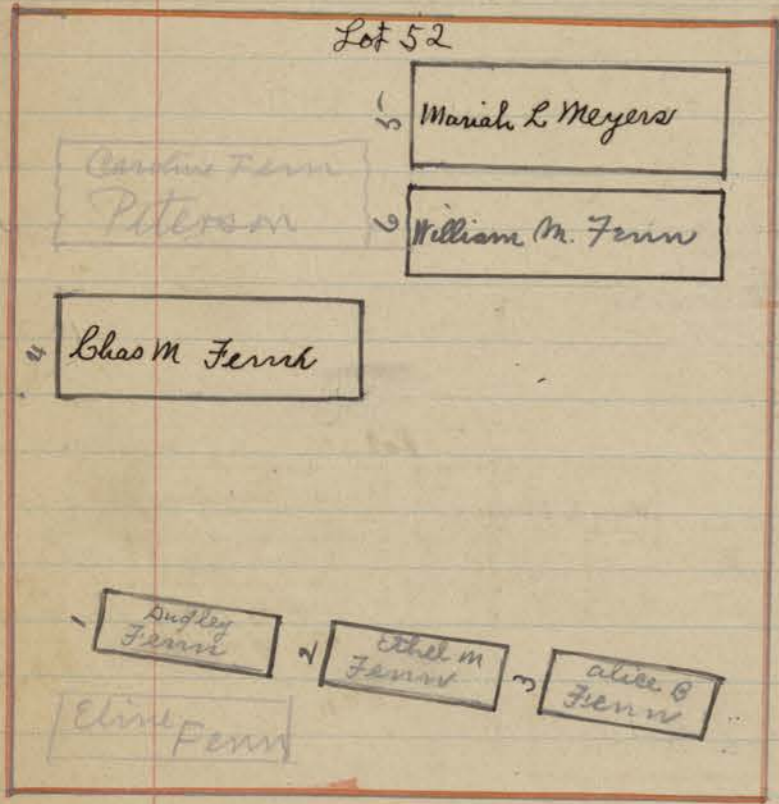 Lot 52
5
Mariah L Meyers
Caroline Fenn
Peterson
6
William M. Fenn
4
Chas M Fenn
1
Dudley
Fenn
2
Ethel M
Fenn
3
alice B
Fenn
Fenn